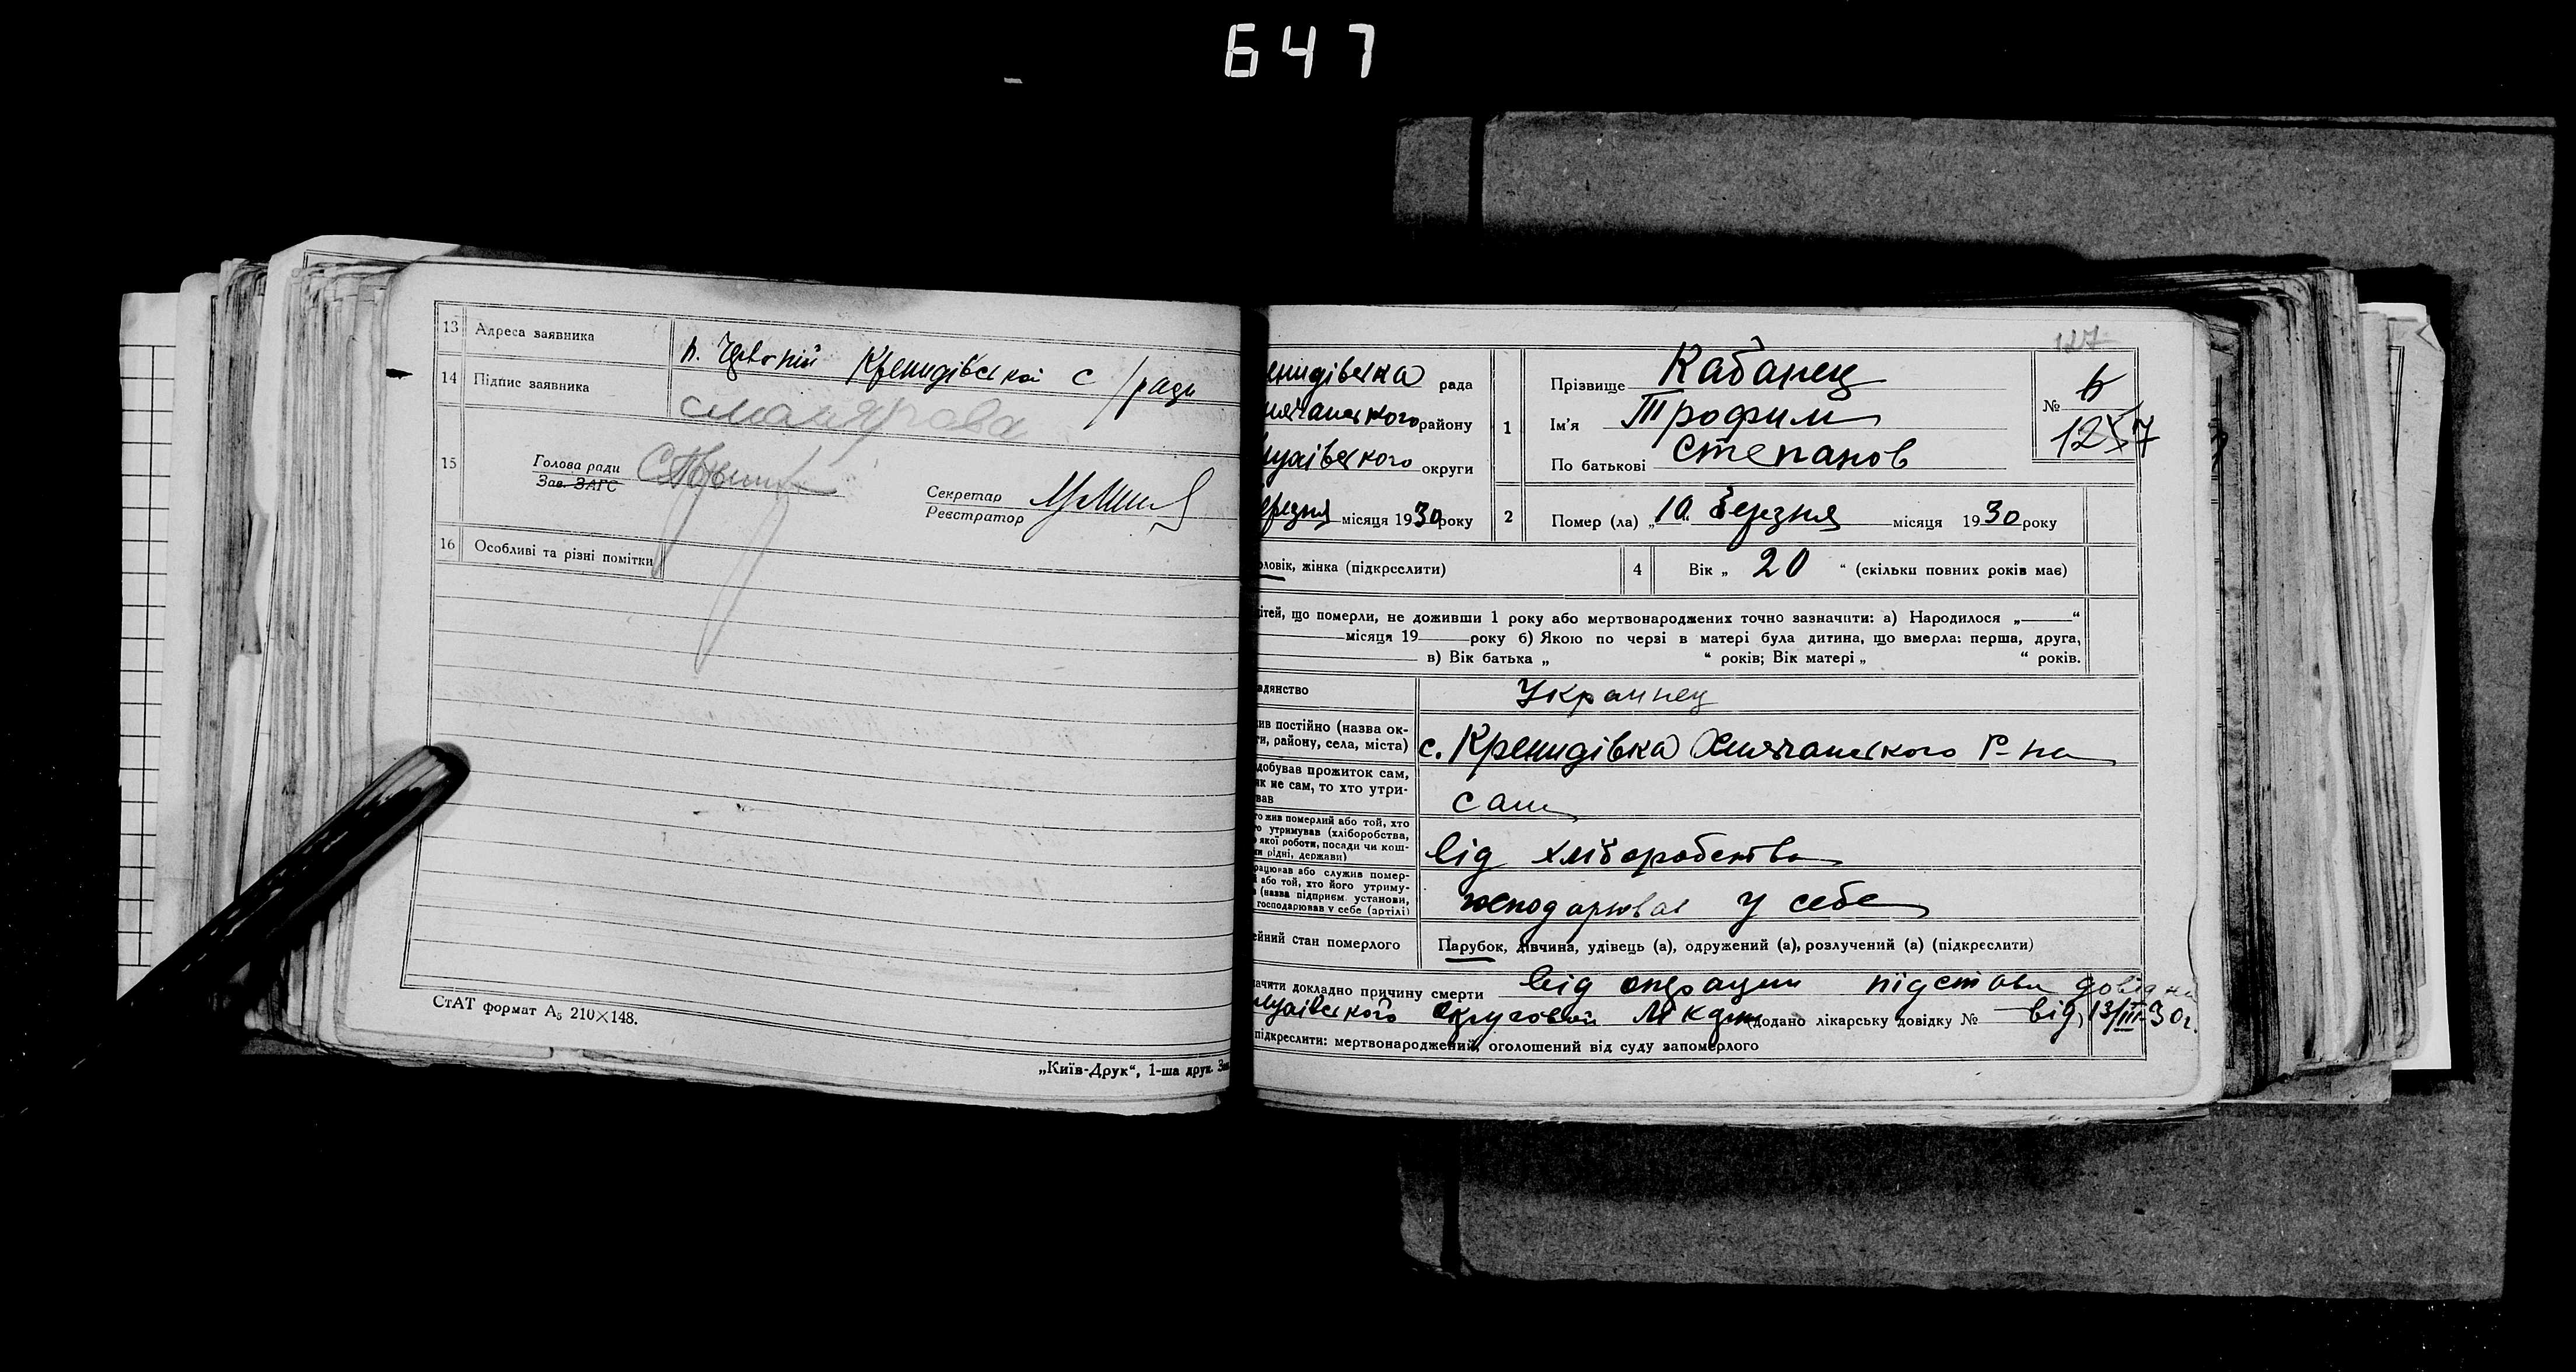 647
13 Адреса заявника
Кренидівської с/ради
14 Підпис заявника
15 Голова ради
Зав. ЗАГС
Секретар
Реєстратор
16 Особливі та різні помітки
СтАТ формат А5 210×148.
„Київ-Друк“, 1-ша друк. Зак
127
енидівська рада
району
округи
ерезня місяця 1930 року
1 Прізвище Кабанец
Ім’я Трофим
По батькові Степанов
№ 6
1257
2 Помер (ла) „10“ березня місяця 1930 року
оловік, жінка (підкреслити)
4 Вік „ 20 “ (скільки повних років має)
ітей, що померли, не доживши 1 року або мертвонароджених точно зазначити: а) Народилося „——“
——місяця 19——року б) Якою по черзі в матері була дитина, що вмерла: перша, друга,
в) Вік батька „ “ років; Вік матері „ “ років.
адянство Украинец
ив постійно (назва ок-
ги, району, села, міста) с. Кренидівка р-на
добував прожиток сам,
як не сам, то хто утри-
вав сам
го жив померлий або той, хто
го утримував (хліборобства,
якої роботи, посади чи кош-
ми рідні, держави) від хліборобства
рацював або служив помер-
й або той, хто його утриму-
в (назва підприєм. установи,
господарював у себе (артілі) господарював у себе
ейний стан померлого Парубок, дівчина, удівець (а), одружений (а), розлучений (а) (підкреслити)
ачити докладно причину смерти від операции підстава довідка
(додано лікарську довідку № — від) 13/III-30г.
підкреслити: мертвонароджений, оголошений від суду запомерлого